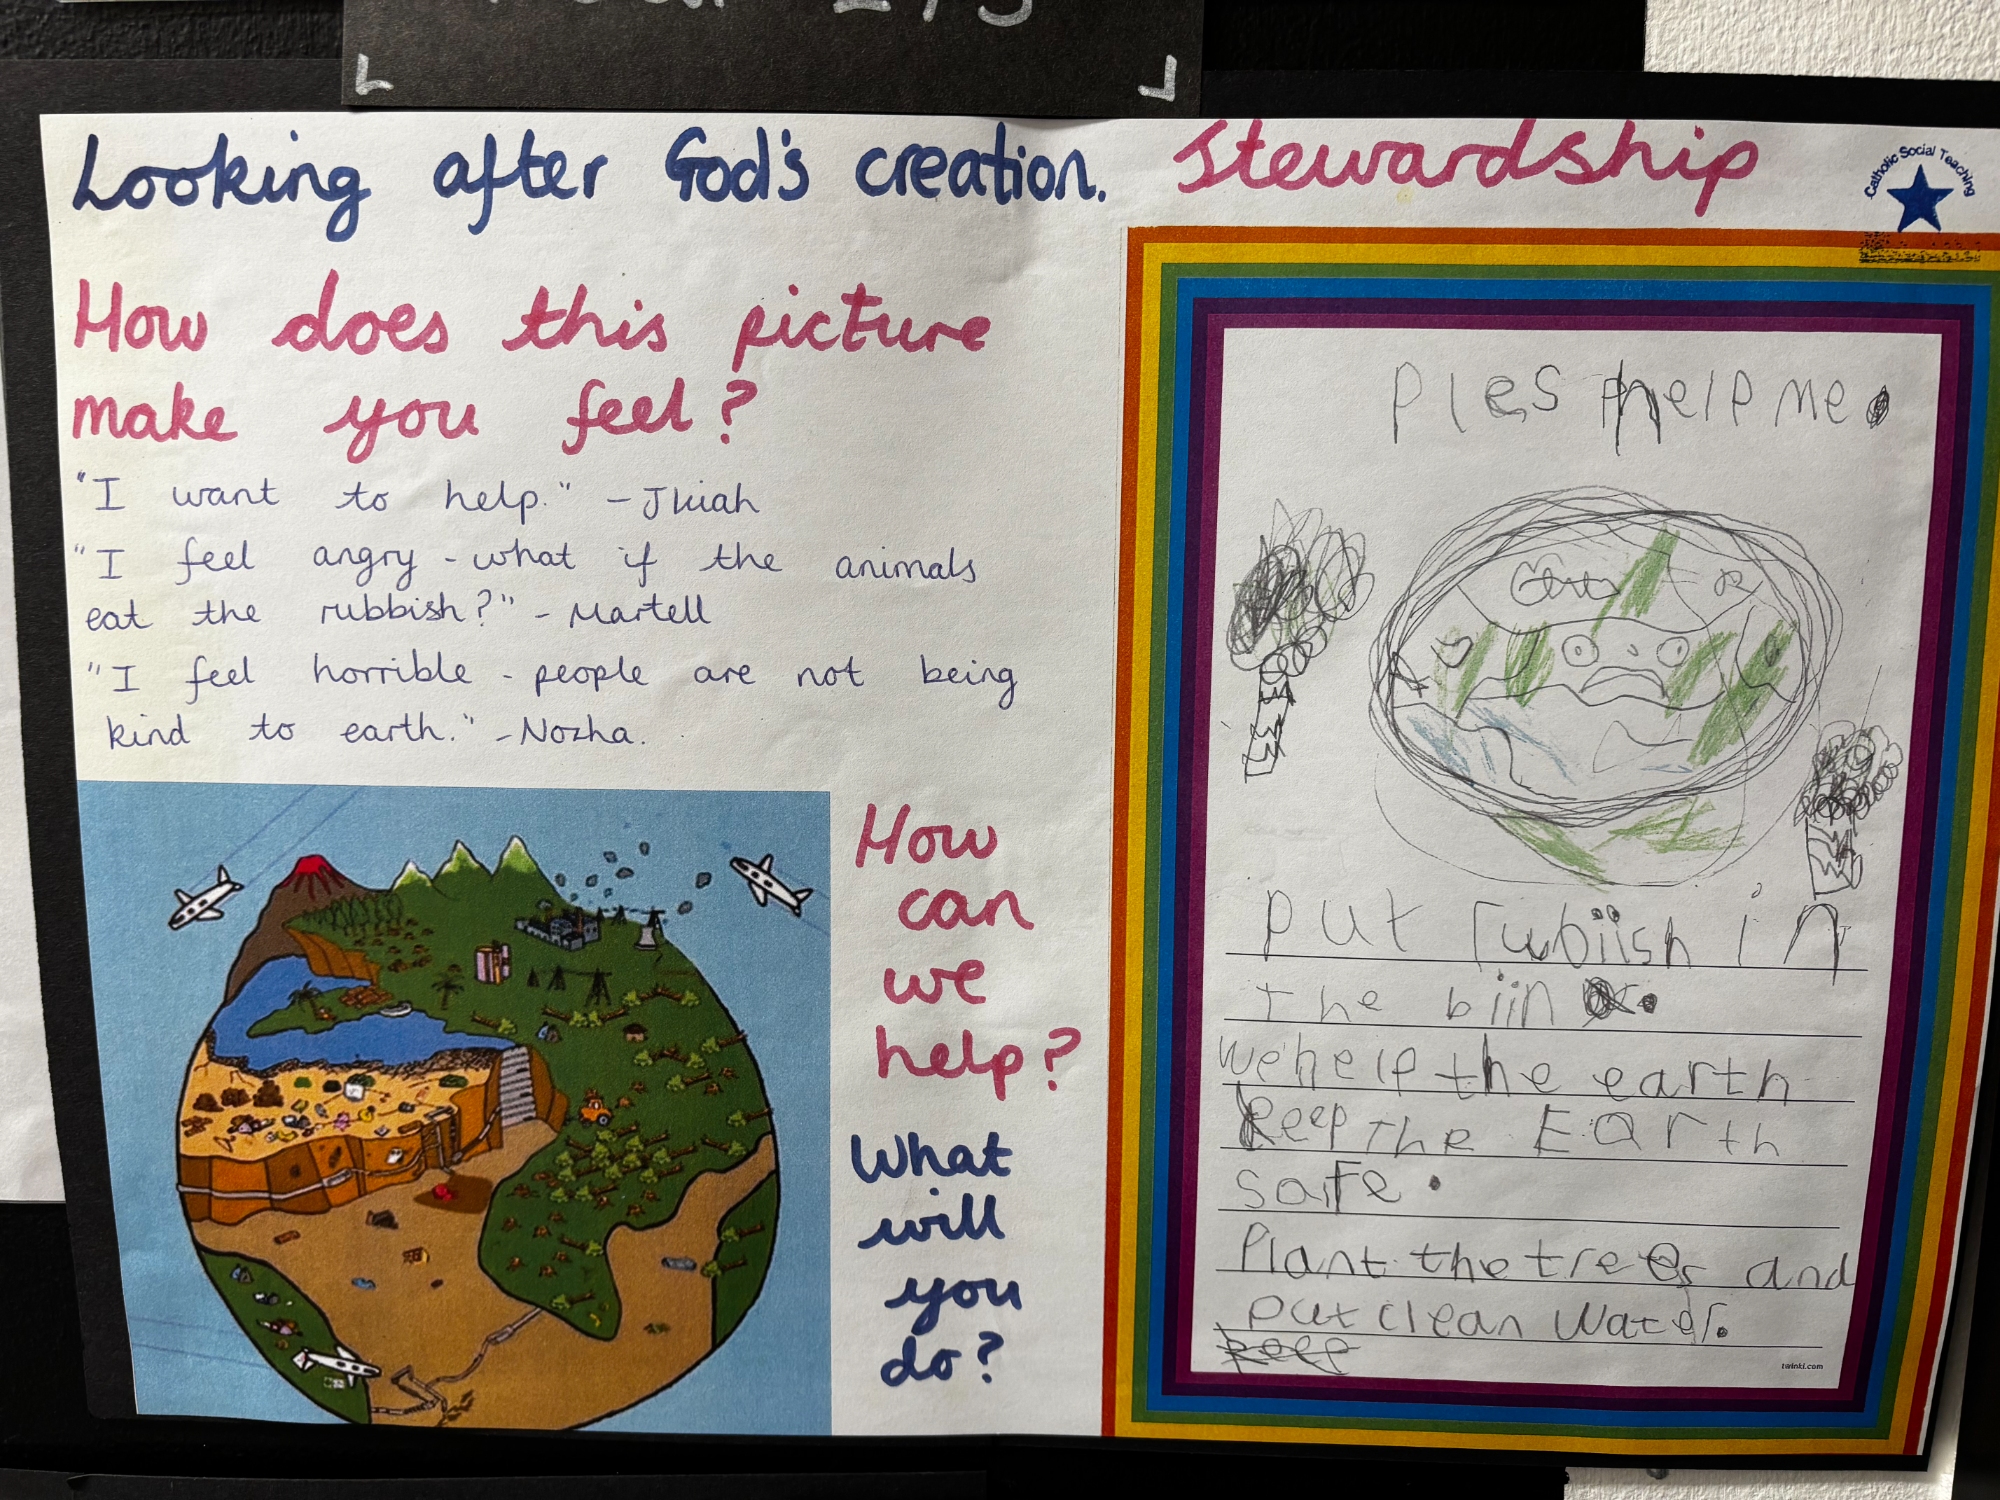 Looking after God's creation. Stewardship
Catholic Social Teaching
How does this picture
make you feel?
"I want to help." - Jkiah
"I feel angry - what if the animals
eat the rubbish?" - Martell
"I feel horrible - people are not being
kind to earth." - Nozha.
How
can
we
help?
What
will
you
do?
Ples help me.
Put rubiish in
the biin.
we help the earth
keep the Earth
safe.
Plant the trees and
put clean water.
twinkl.com